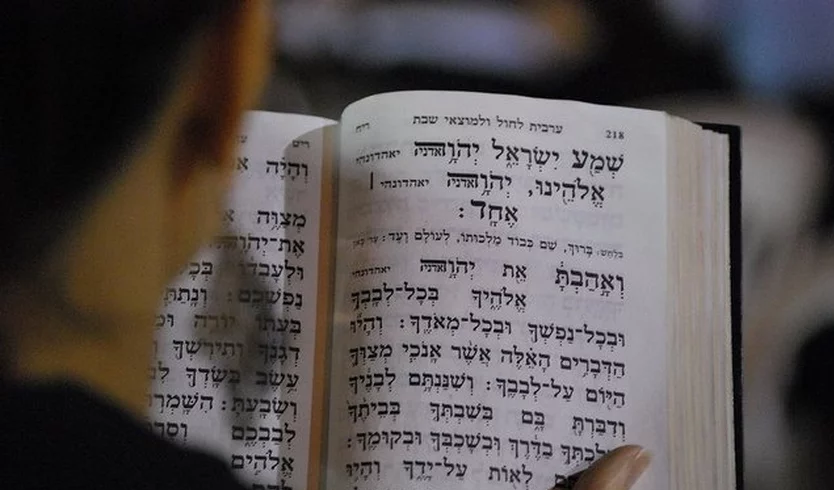 218 ערבית לחול ולמוצאי שבת ריח
שְׁמַע יִשְׂרָאֵל יְהֹוָה אדניה יאהדונהי
אֱלֹהֵינוּ, יְהֹוָה אדניה יאהדונהי |
אֶחָד:
בלחש: בָּרוּךְ, שֵׁם כְּבוֹד מַלְכוּתוֹ, לְעוֹלָם וָעֶד:
וְאָהַבְתָּ אֵת יְהֹוָה אדניה יאהדונהי
אֱלֹהֶיךָ בְּכָל־לְבָבְךָ
וּבְכָל־נַפְשְׁךָ וּבְכָל־מְאֹדֶךָ: וְהָיוּ
הַדְּבָרִים הָאֵלֶּה אֲשֶׁר אָנֹכִי מְצַוְּךָ
הַיּוֹם עַל־לְבָבֶךָ: וְשִׁנַּנְתָּם לְבָנֶיךָ
וְדִבַּרְתָּ בָּם בְּשִׁבְתְּךָ בְּבֵיתֶךָ
בַדֶּרֶךְ וּבְשָׁכְבְּךָ וּבְקוּמֶךָ:
לְאוֹת עַל־יָדֶךָ וְהָיוּ
וְהָיָה
מְצַוֶּה
אֶת־יְהֹוָה
וּלְעָבְדוֹ בְּכָל
נַפְשְׁכֶם: וְנָתַתִּי
בְּעִתּוֹ יוֹרֶה
דְגָנֶךָ וְתִירֹשְׁךָ
עֵשֶׂב בְּשָׂדְךָ
וְשָׂבָעְתָּ: הִשָּׁמְרוּ
לְבַבְכֶם
אֱלֹהִים